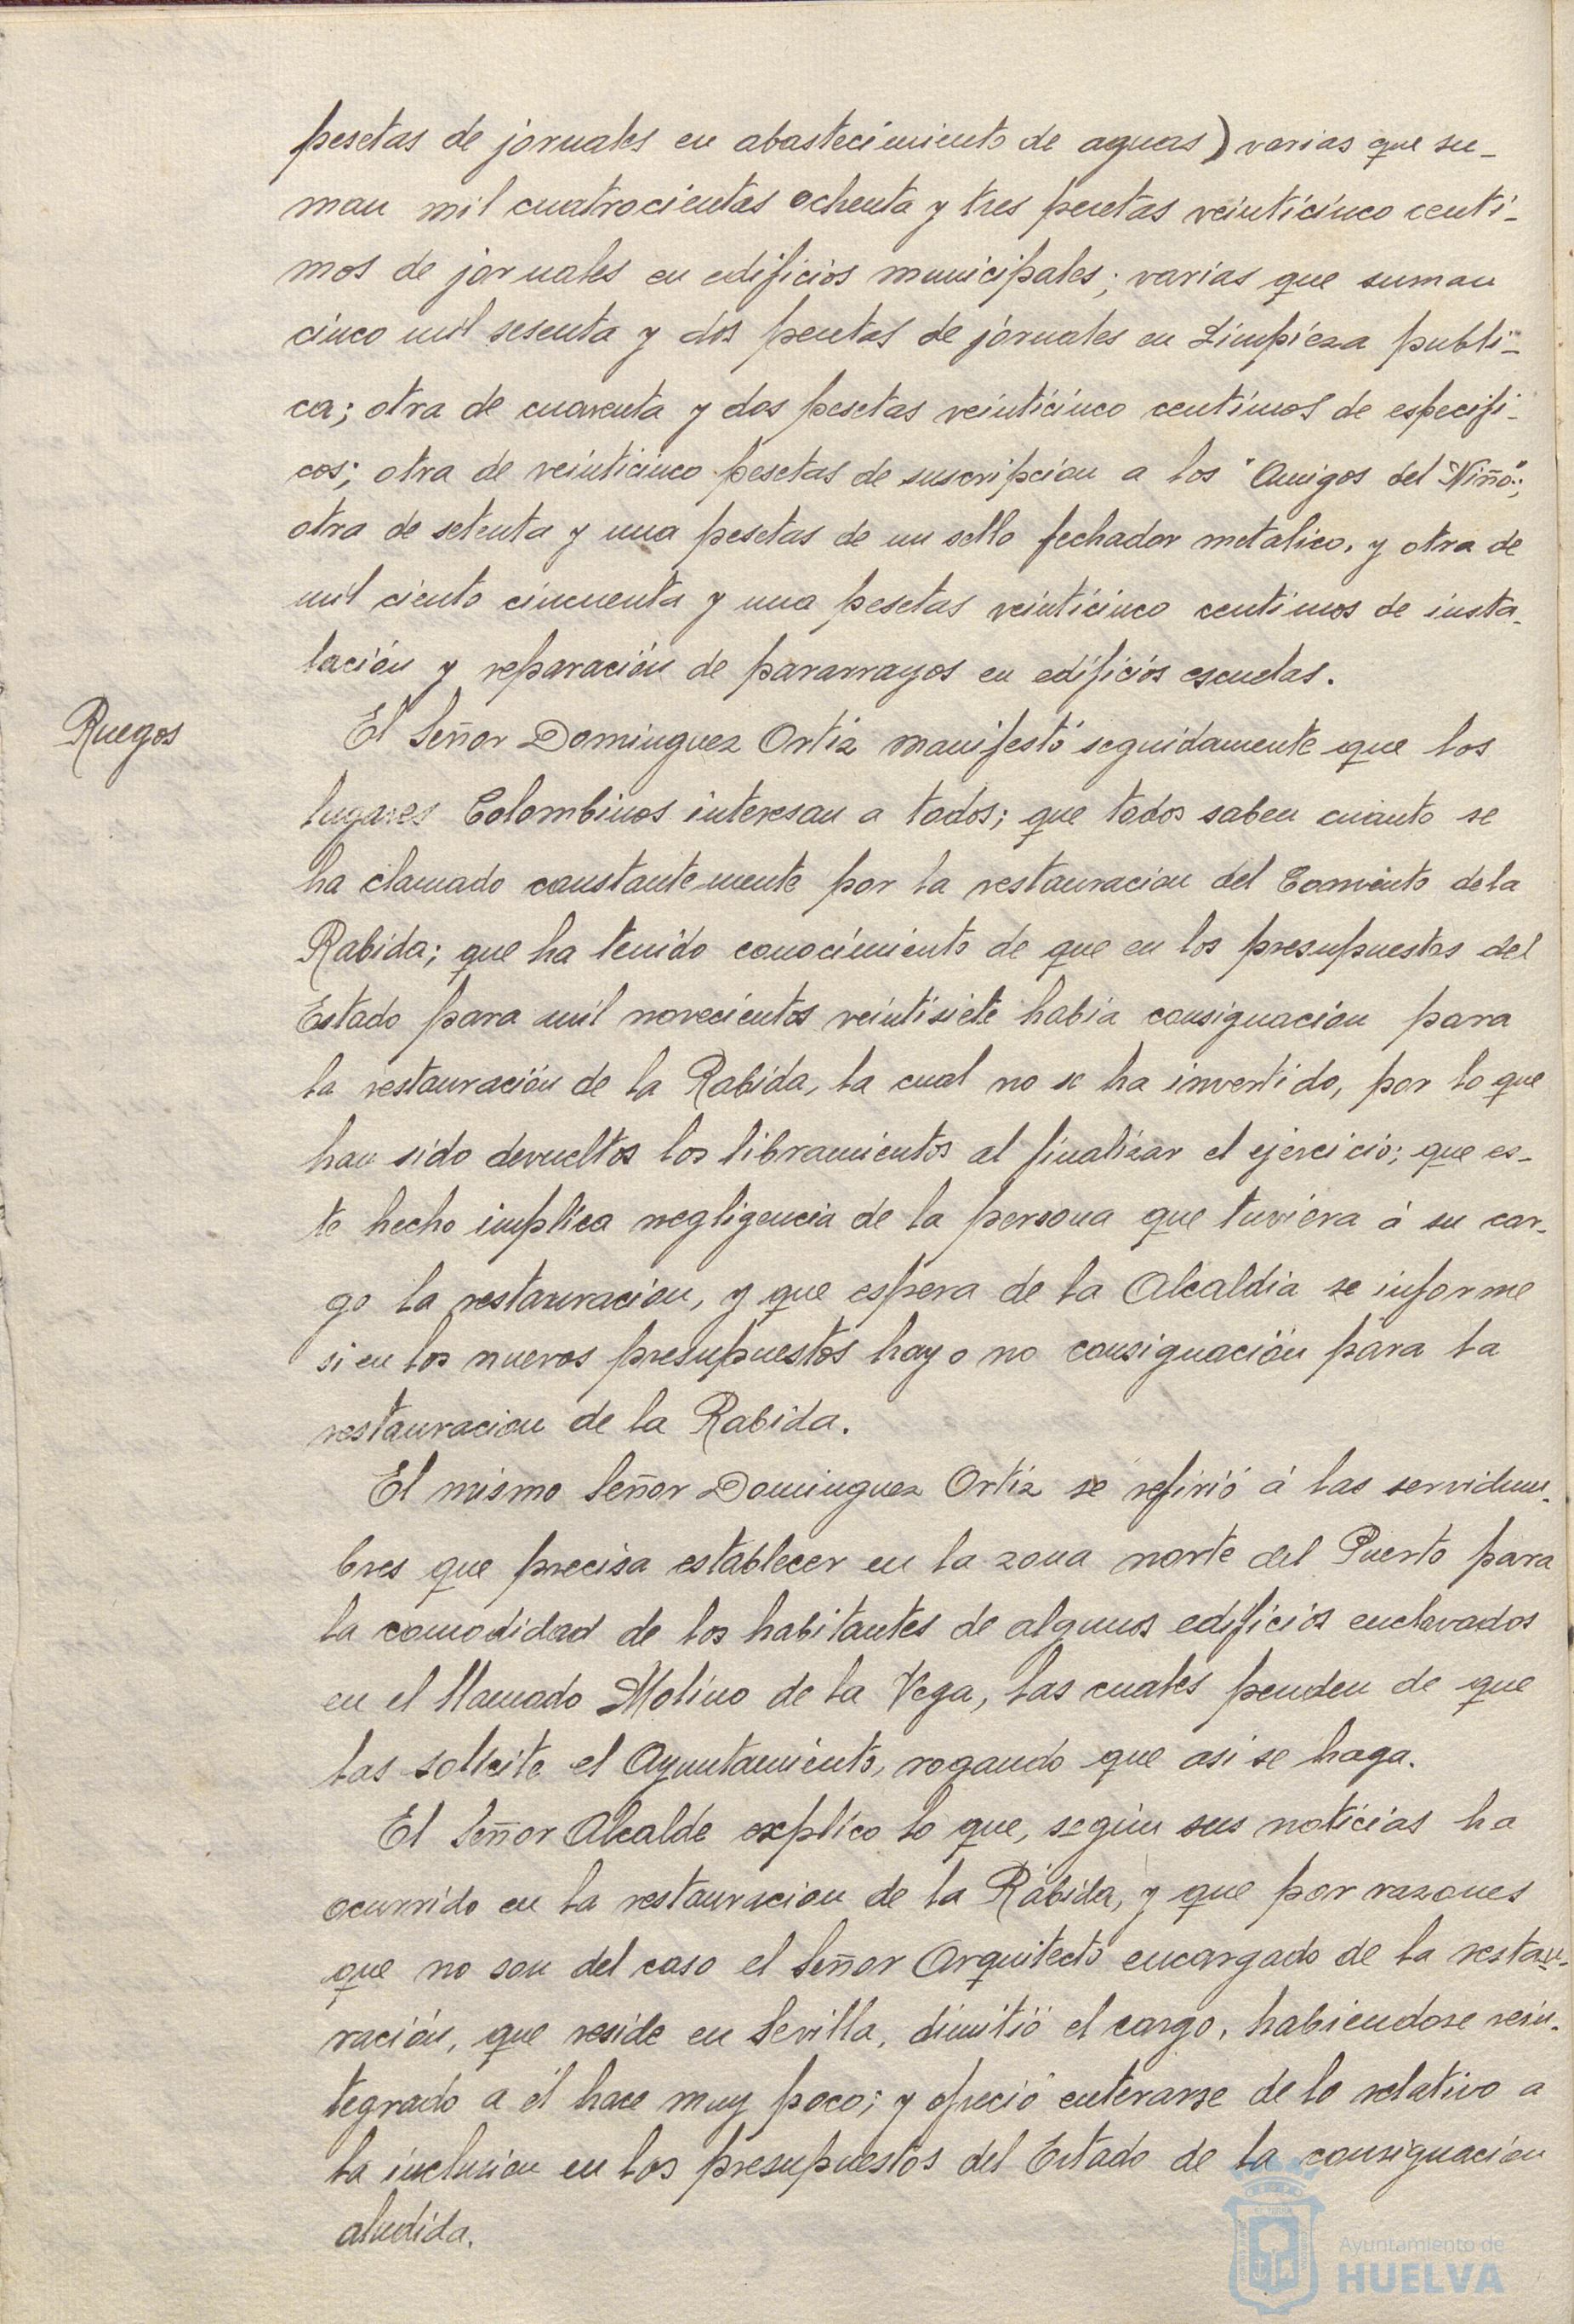 pesetas de jornales en abastecimiento de aguas) varias que su-
man mil cuatrocientas ochenta y tres pesetas veinticinco centi-
mos de jornales en edificios municipales; varias que suman
cinco mil sesenta y dos pesetas de jornales en Limpieza publi-
ca; otra de cuarenta y dos pesetas veinticinco centimos de especifi-
cos; otra de veinticinco pesetas de suscripcion a los "Amigos del Niño";
otra de setenta y una pesetas de un sello fechador metalico, y otra de
mil ciento cincuenta y una pesetas veinticinco centimos de insta-
lación y reparación de pararrayos en edificios escuelas.
Ruegos
El Señor Dominguez Ortiz manifestó seguidamente que los
lugares Colombinos interesan a todos; que todos saben cuanto se
ha clamado constantemente por la restauracion del Convento de la
Rabida; que ha tenido conocimiento de que en los presupuestos del
Estado para mil novecientos veintisiete habia consignación para
la restauración de la Rabida, la cual no se ha invertido, por lo que
han sido devueltos los libramientos al finalizar el ejercicio; que es-
te hecho implica negligencia de la persona que tuviera á su car-
go la restauracion, y que espera de la Alcaldia se informe
si en los nuevos presupuestos hay o no consignación para la
restauracion de la Rabida.
El mismo Señor Dominguez Ortiz se refirió á las servidum-
bres que precisa establecer en la zona norte del Puerto para
la comodidad de los habitantes de algunos edificios enclavados
en el llamado Molino de la Vega, las cuales penden de que
las solicite el Ayuntamiento, rogando que asi se haga.
El Señor Alcalde explico lo que, según sus noticias ha
ocurrido en la restauracion de la Rábida, y que por razones
que no son del caso el Señor Arquitecto encargado de la restau-
ración, que reside en Sevilla, dimitió el cargo, habiendose rein-
tegrado a él hace muy poco; y ofreció enterarse de lo relativo a
la inclusion en los presupuestos del Estado de la consignación
aludida.
Ayuntamiento de
HUELVA